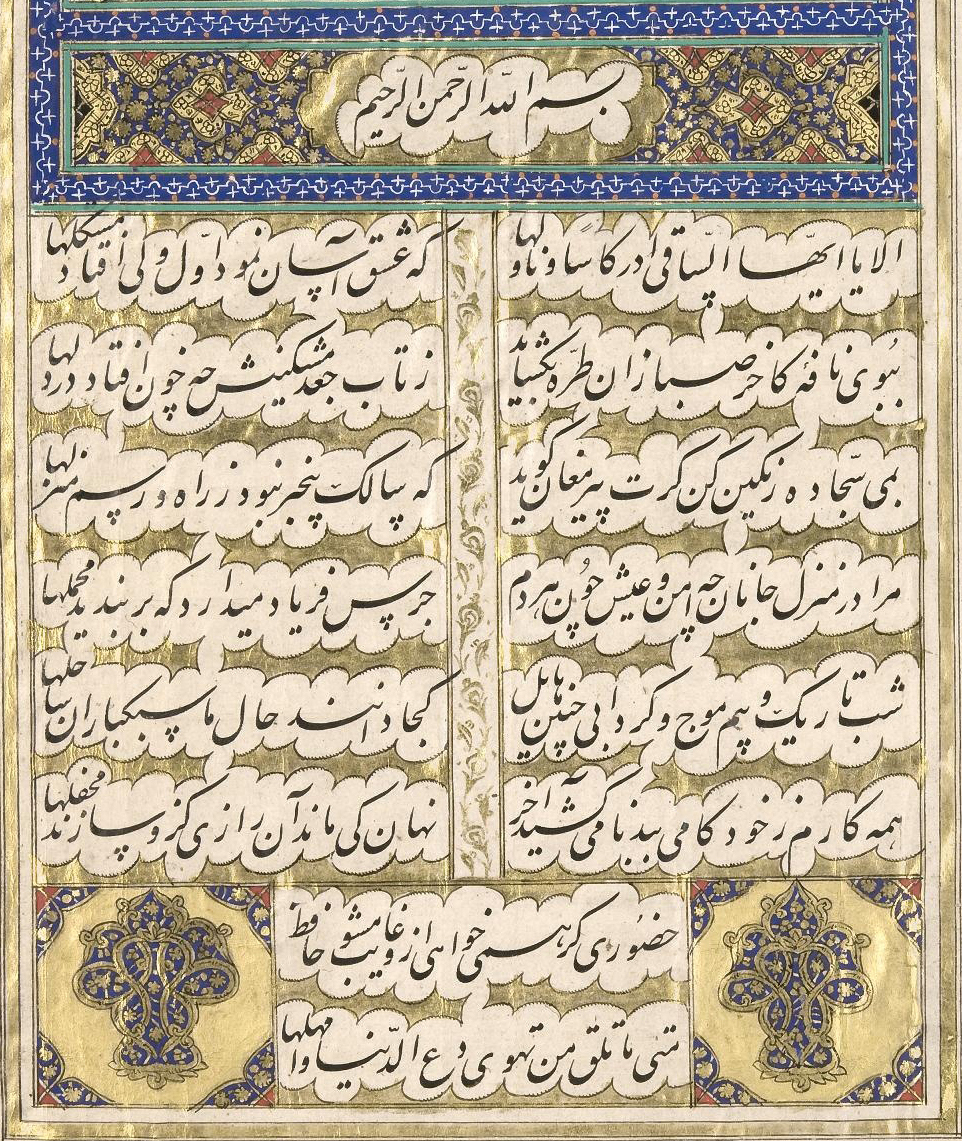 بسم الله الرّحمن الرّحیم
الا یا ایّها السّاقی ادر کاسا و ناولها که عشق آسان نمود اوّل ولی افتاد مشکلها
ببوی نافه کاخر صبا زان طرّه بگشاید ز تاب جعد مشکینش چه خون افتاد در دلها
بمی سجّاده رنگین کن گرت پیر مغان گوید که سالک بیخبر نبود ز راه و رسم منزلها
مرا در منزل جانان چه امن و عیش چون هر دم جرس فریاد میدارد که بربندید محملها
شب تاریک و بیم موج و گردابی چنین هایل کجا دانند حال ما سبکباران ساحلها
همه کارم ز خود کامی ببدنامی کشید آخر نهان کی ماند آن رازی کزو سازند محفلها
حضوری گر همی خواهی ازو غایب مشو حافظ
متی ما تلق من تهوی دع الدّنیا وامهلها